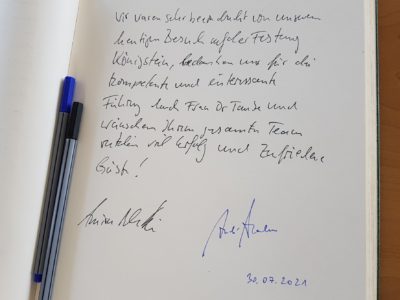 Wir waren sehr beeindruckt von unserem
heutigen Besuch auf der Festung
Königstein, bedanken uns für die
kompetente und interessante
Führung durch Frau Dr. Taube und
wünschen Ihrem gesamten Team
weiterhin viel Erfolg und zufriedene
Gäste!
30.07.2021